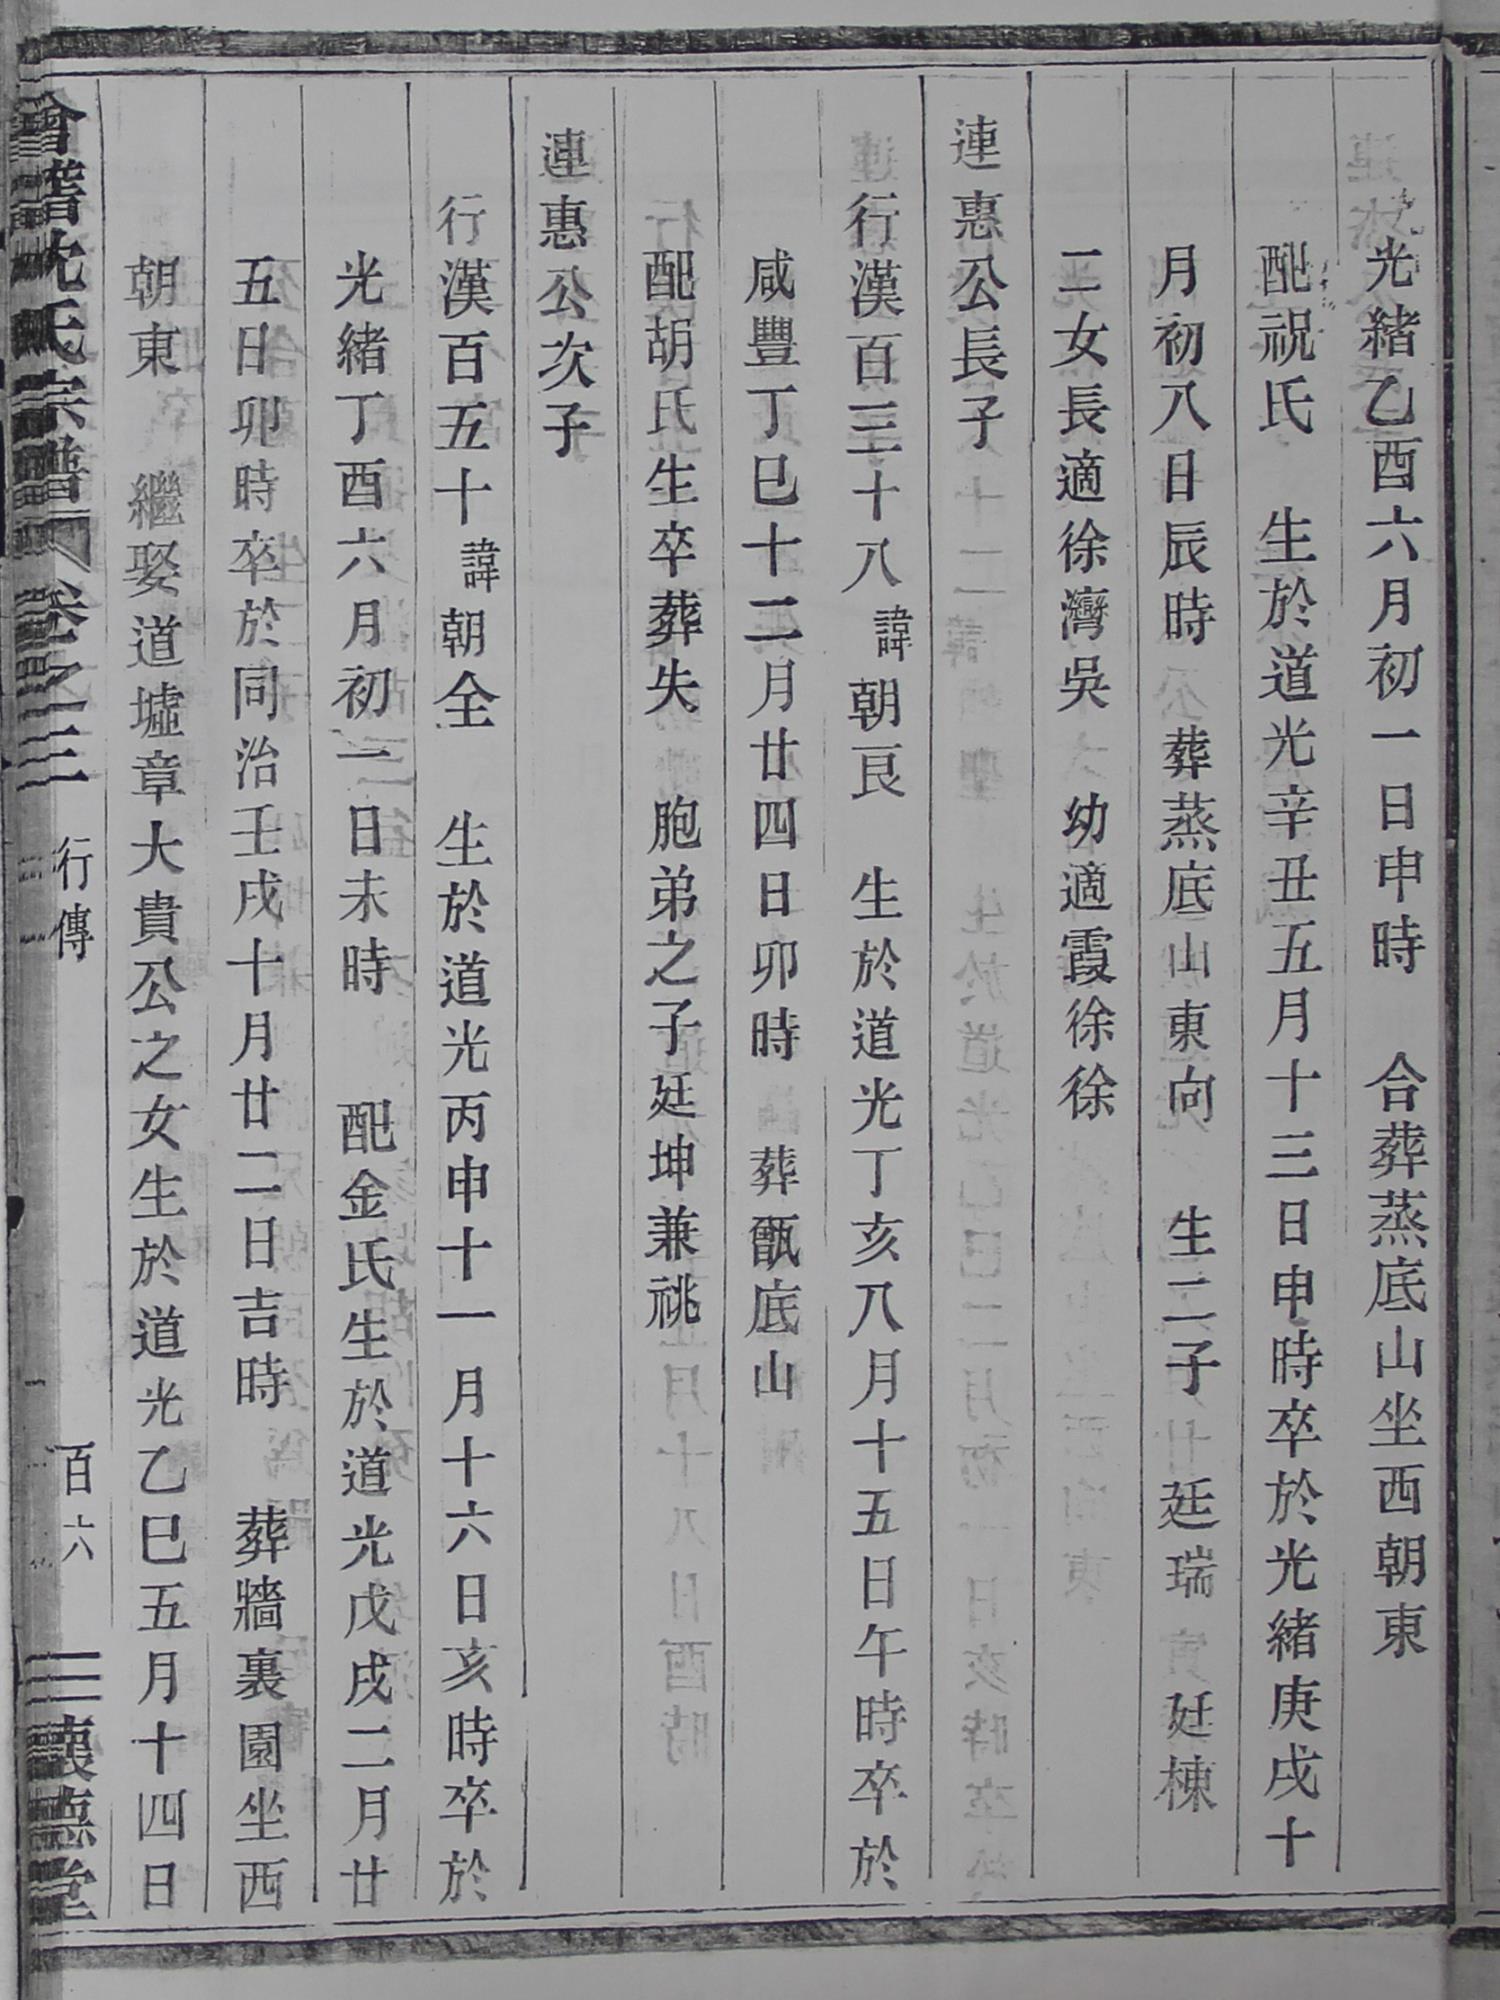 光緒乙酉六月初一日申時　合葬蒸底山坐西朝東
配祝氏　生於道光辛丑五月十三日申時卒於光緒庚戌十
月初八日辰時　葬蒸底山東向　生二子　廷瑞　廷棟
二女長適徐灣吳　幼適霞徐徐
連惠公長子
行漢百三十八諱朝艮　生於道光丁亥八月十五日午時卒於
咸豐丁巳十二月廿四日卯時　葬甑底山
配胡氏生卒葬失　胞弟之子廷坤兼祧
連惠公次子
行漢百五十諱朝全　生於道光丙申十一月十六日亥時卒於
光緒丁酉六月初一日未時　配金氏生於道光戊戌二月廿
五日卯時卒於同治壬戌十月廿二日吉時　葬牆裏園坐西
朝東　繼娶道墟章大貴公之女生於道光乙巳五月十四日
會稽沈氏宗譜　卷之三　行傳　百六　懷德堂